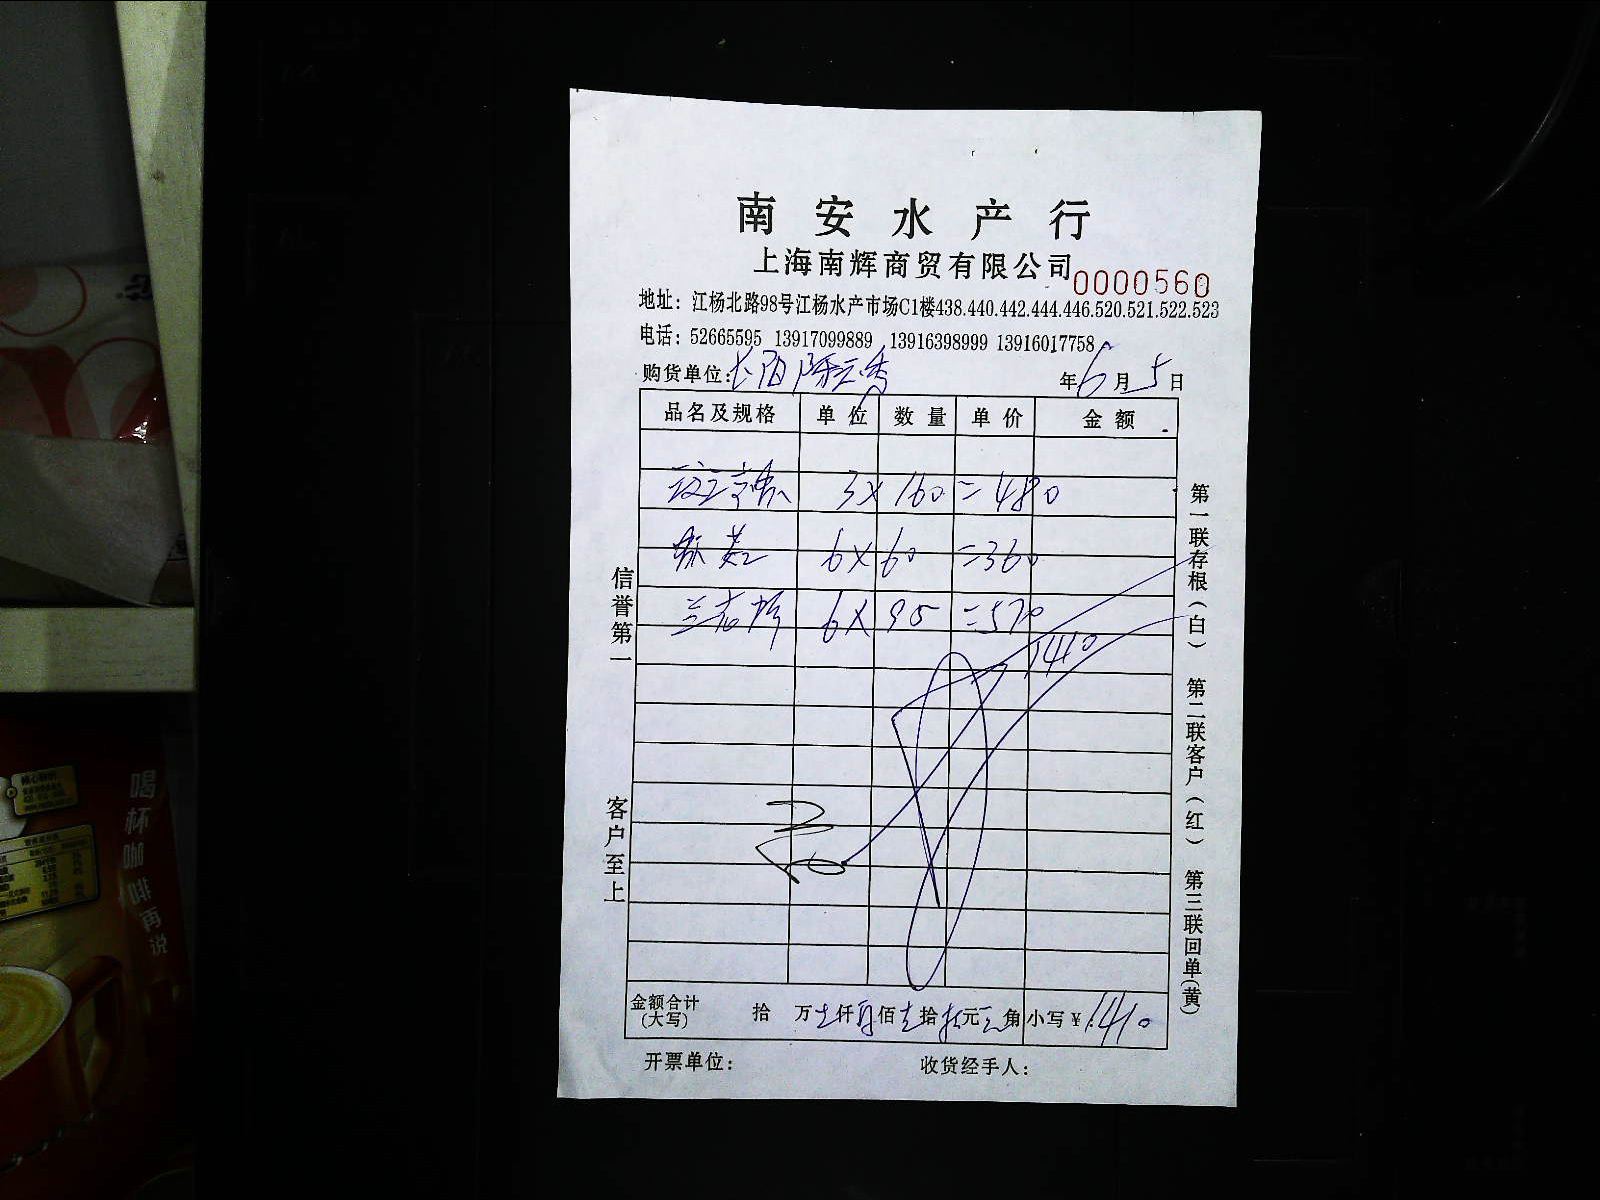 南安水产行
上海南辉商贸有限公司
0000560
地址：江杨北路98号江杨水产市场C1楼438.440.442.444.446.520.521.522.523
电话：52665595 13917099889 13916398999 13916017758
购货单位：
年6月5日
品名及规格 单位 数量 单价 金额
3×160=480
6×60=360
6×95=570
1410
信誉第一 客户至上
第一联存根（白） 第二联客户（红） 第三联回单(黄)
金额合计(大写) 拾 万 仟 佰 拾 元 角 小写¥1410
开票单位： 收货经手人：
喝杯咖啡再说